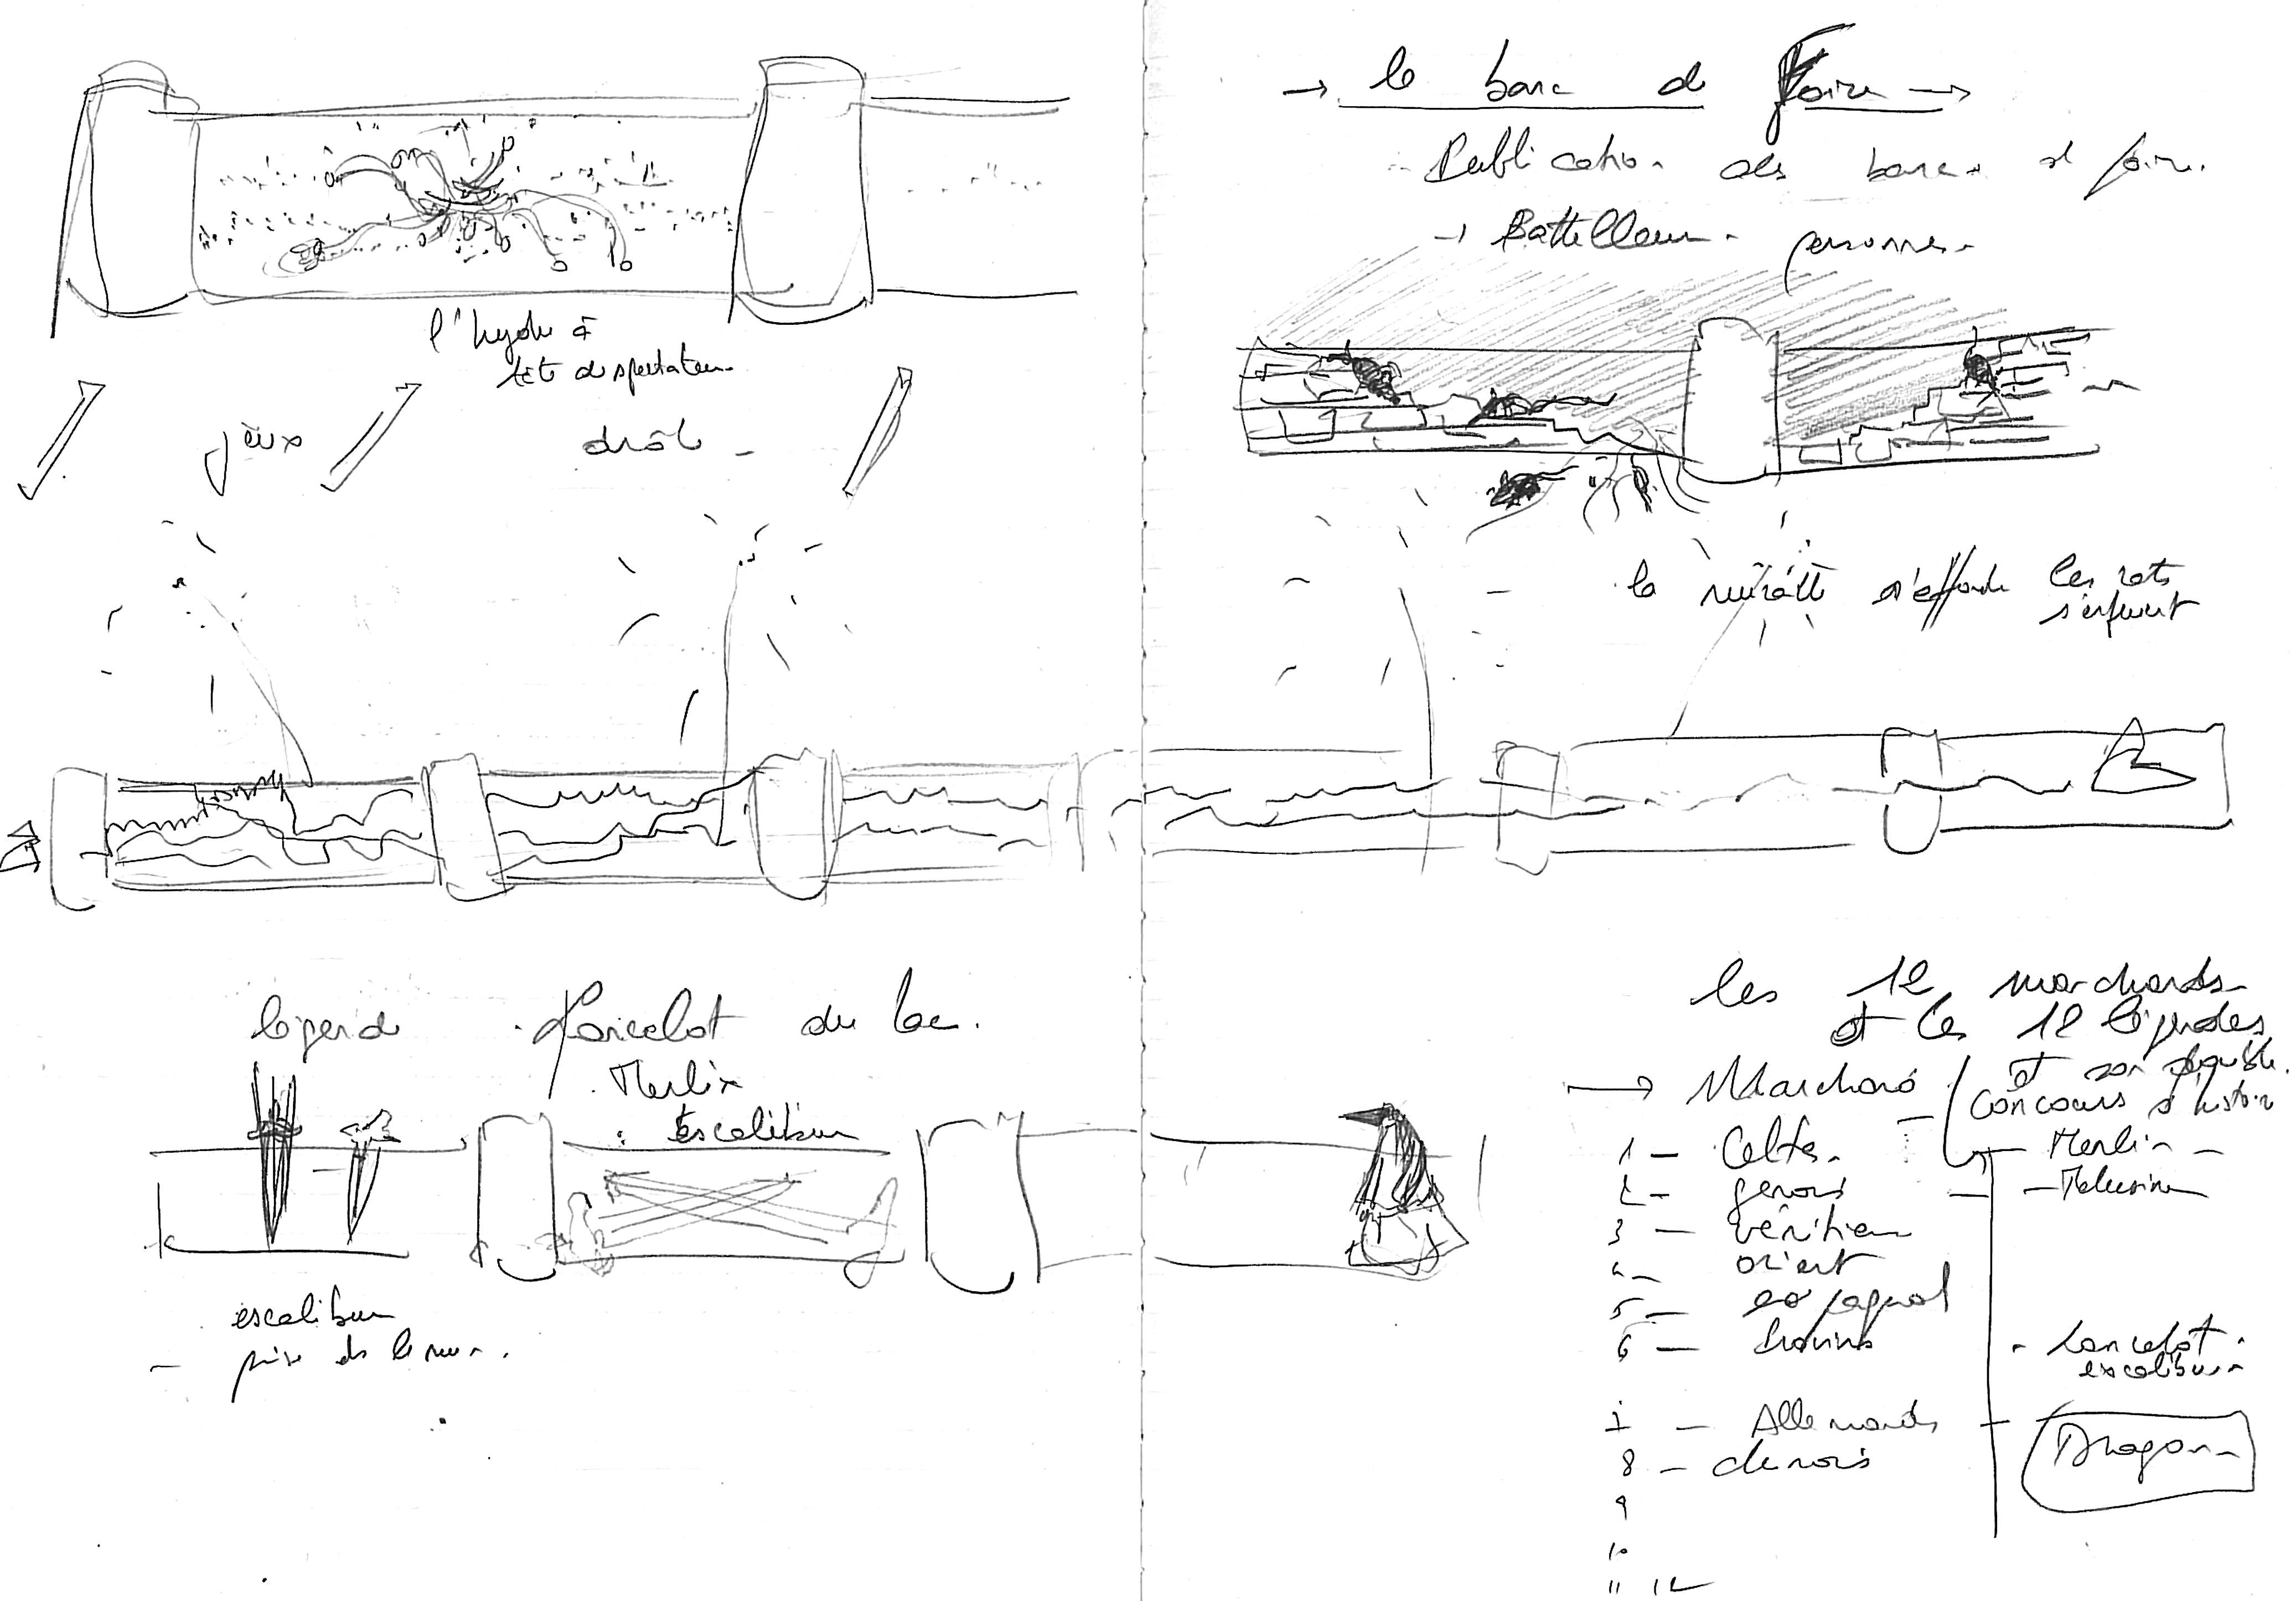 l'hydre à
tête de spectateur
jeux drôle
légende Lancelot du lac.
Merlin
: escalibur
escalibur
- prise ds le mur.
→ le banc de Foire →
Publication des bancs de foire.
→ personne
la muraille s'effondre les rats
s'enfuient
les 12 marchands
et les 12 légendes
→ Marchand et son double
concours d'histoire
1 - Celtes - Merlin -
2 - génois - Melusine
3 - vénitien
4 - orient
5 - espagnol
6 - Provins - Lancelot.
escalibur
7 - Allemands - Dragon
8 - danois
9
10
11 12